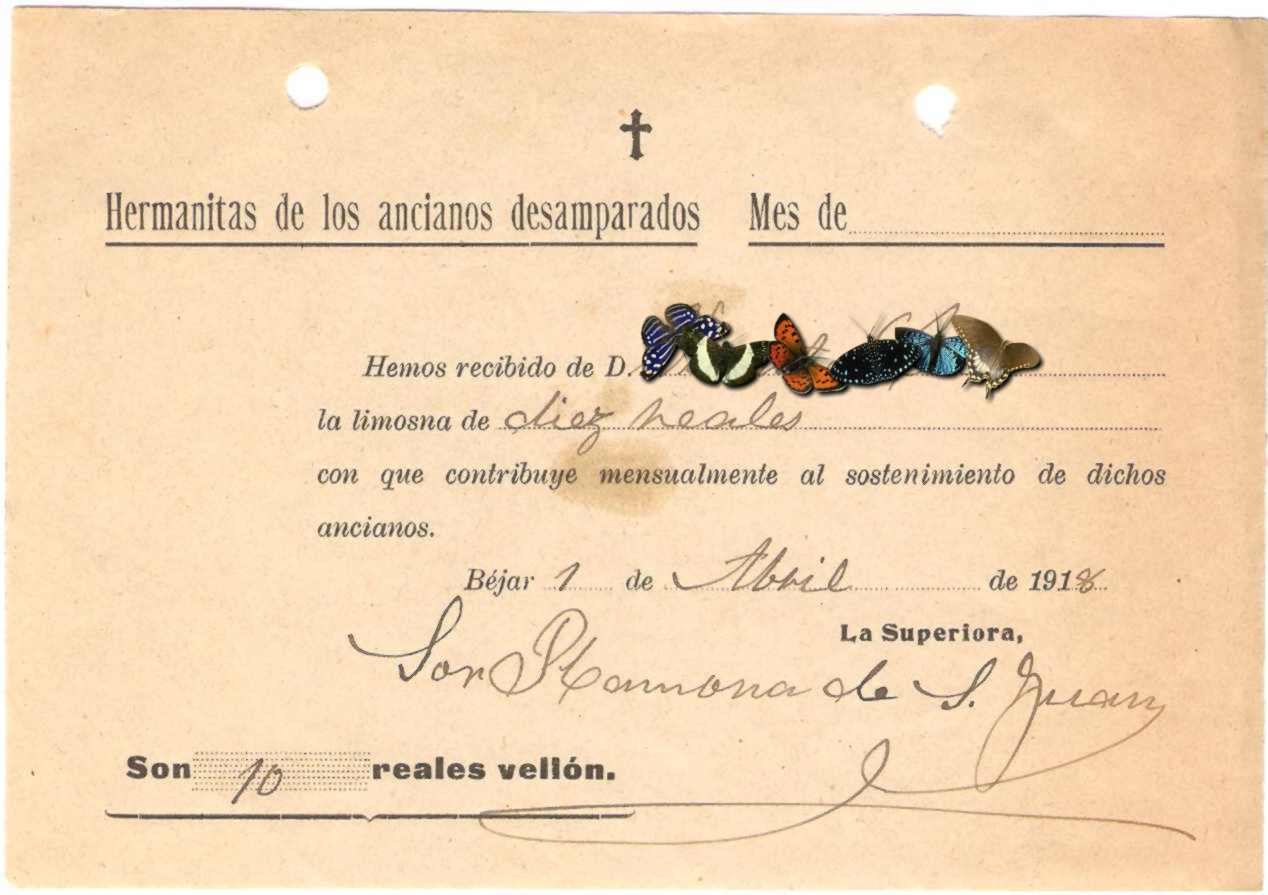 Hermanitas de los ancianos desamparados Mes de
Hemos recibido de D.
la limosna de diez reales
con que contribuye mensualmente al sostenimiento de dichos
ancianos.
Béjar 1 de Abril de 1918
La Superiora,
Sor Ramona de S. Juan
Son 10 reales vellón.